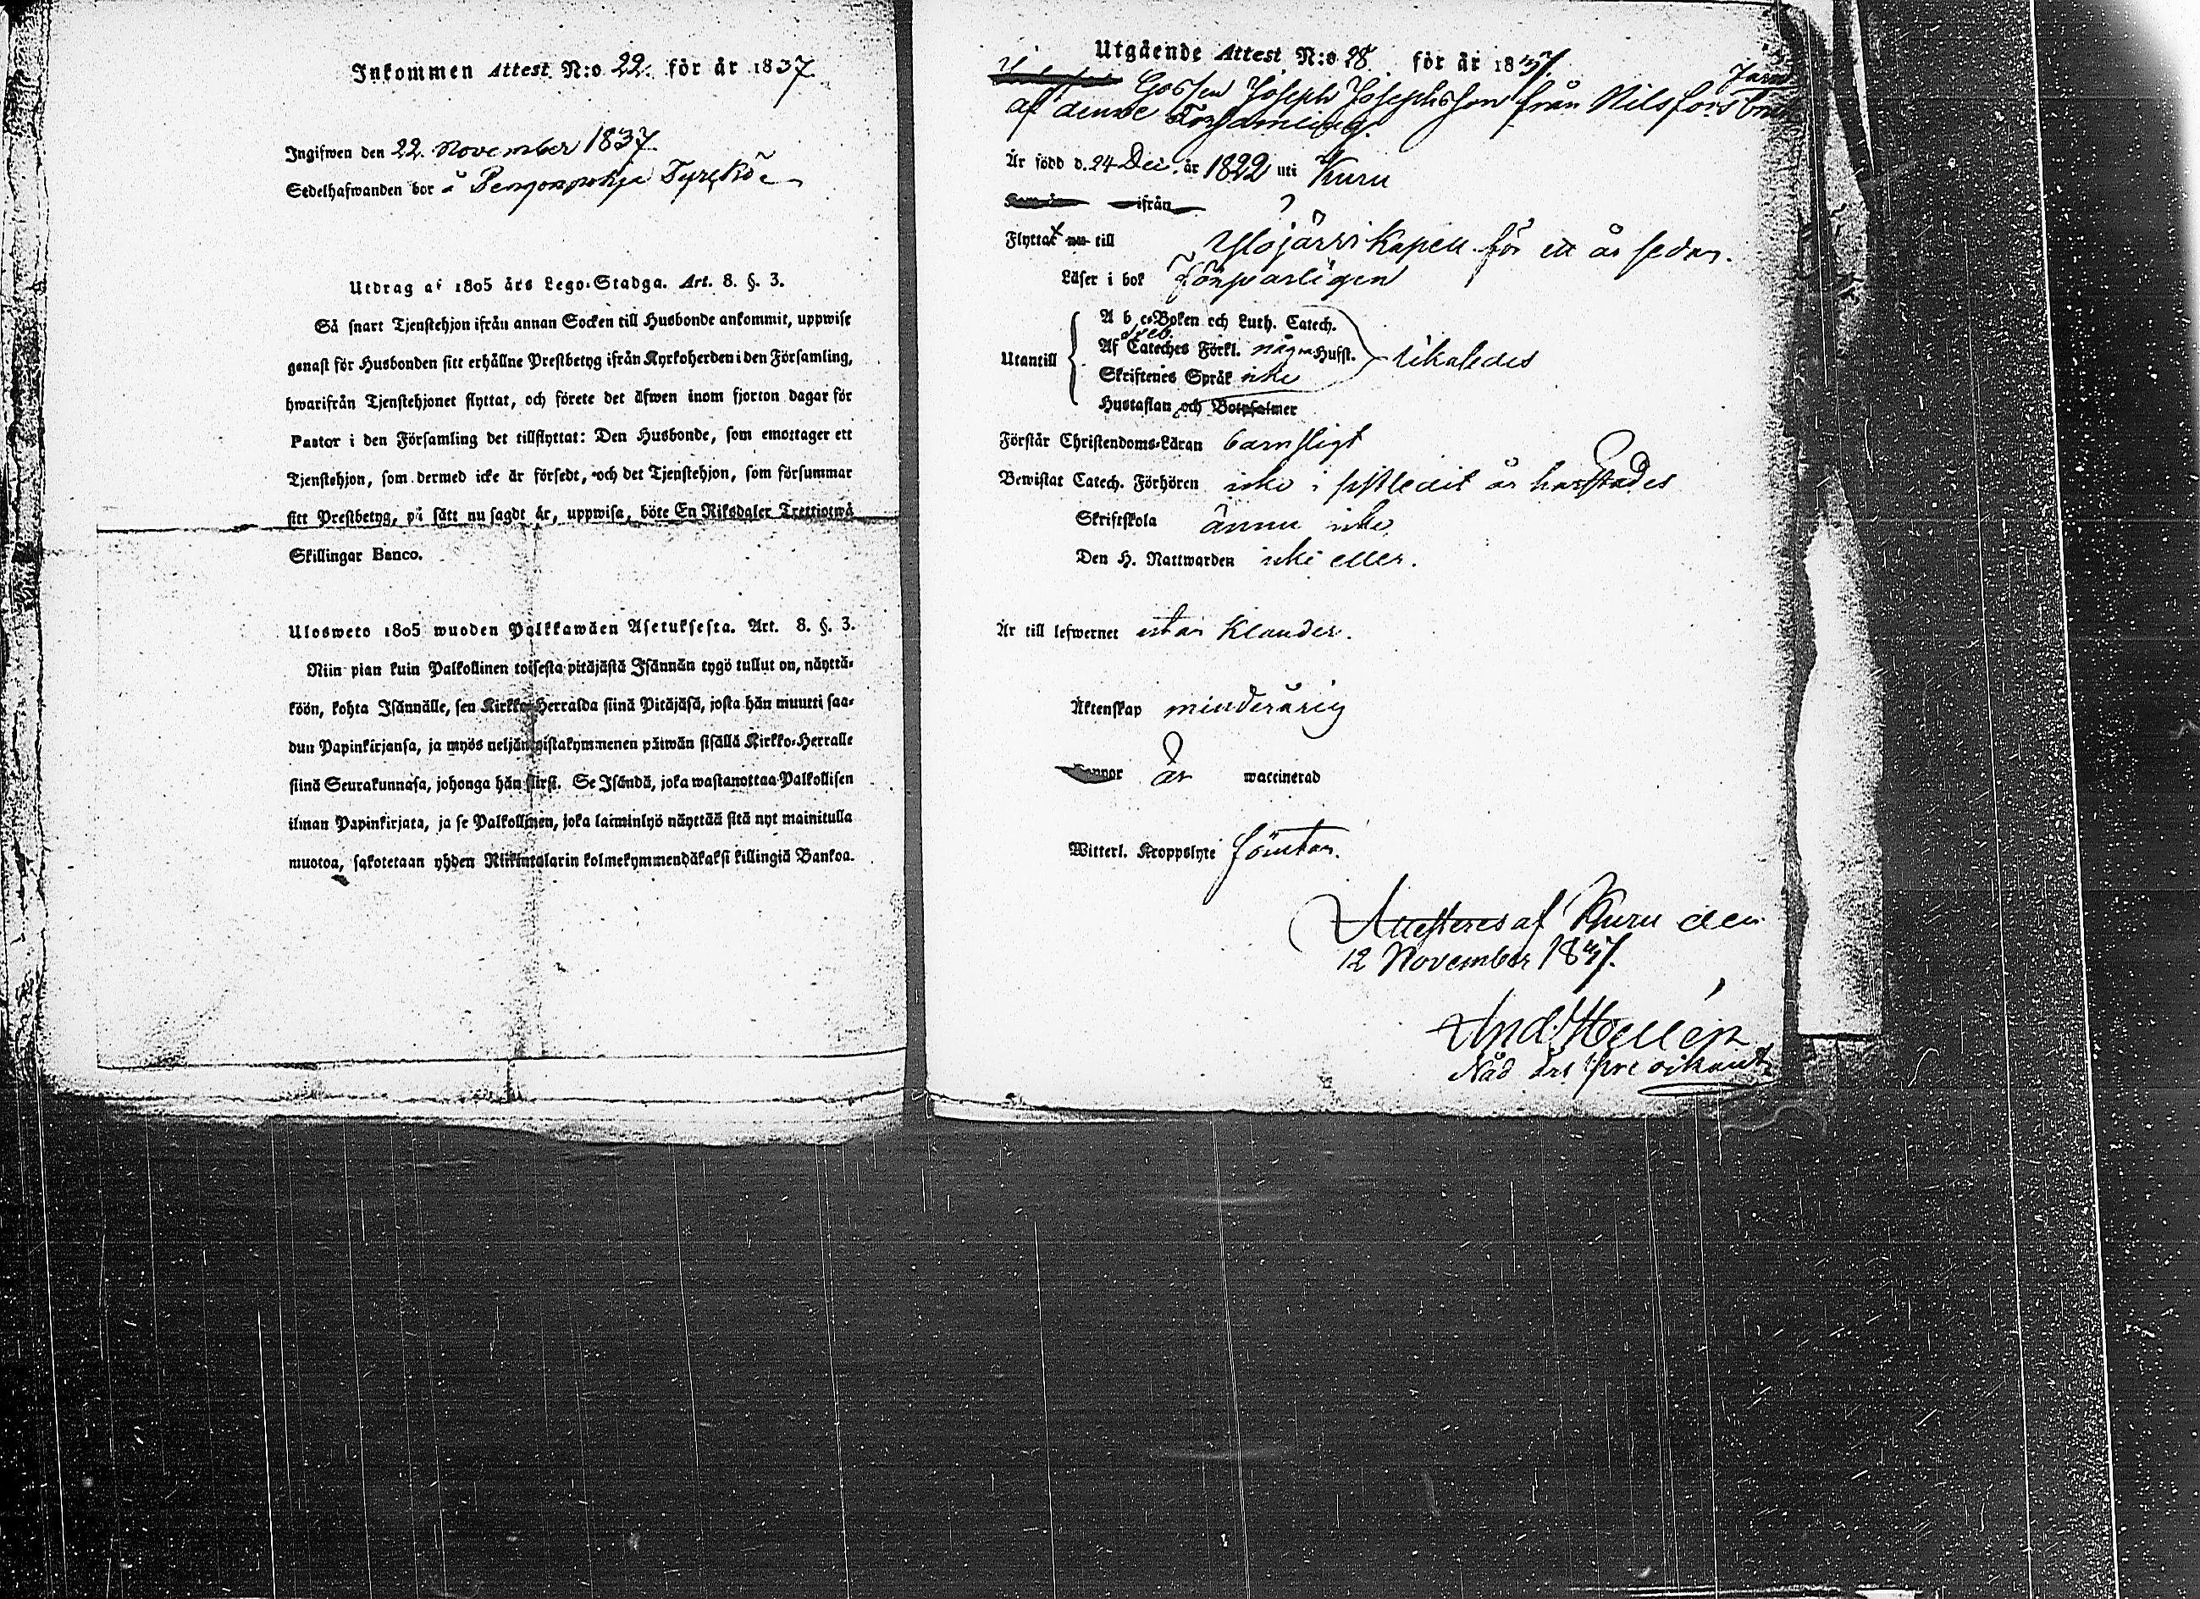 Inkommen Attest N:o 22. för år 1837.
Ingifwen den 22. November 1837.
Sedelhafwanden bor å
Utdrag af 1805 års Lego-Stadga. Art. 8. §. 3.
Så snart Tjenstehjon ifrån annan Socken till Husbonde ankommit, uppwise
genast för Husbonden sitt erhållne Prestbetyg ifrån Kyrkoherden i den Församling,
hwarifrån Tjenstehjonet flyttat, och förete det äfwen inom fjorton dagar för
Pastor i den Församling det tillflyttat: Den Husbonde, som emottager ett
Tjenstehjon, som dermed icke är försedt, och det Tjenstehjon, som försummar
sitt Prestbetyg, på sätt nu sagdt är, uppwisa, böte En Riksdaler Trettiotwå
Skillingar Banco.
Ulosweto 1805 wuoden Palkkawäen Asetuksesta. Art. 8. §. 3.
Niin pian kuin Palkollinen toisesta pitäjästä Isännän tygö tullut on, näyttä-
köön, kohta Isännälle, sen Kirkko-Herralda siinä Pitäjäsä, josta hän muutti saa-
dun Papinkirjansa, ja myös neljäntoistakymmenen päiwän sisällä Kirkko-Herralle
siinä Seurakunnasa, johonga hän siirsi. Se Isändä, joka wastanottaa Palkollisen
ilman Papinkirjata, ja se Palkollinen, joka laiminlyö näyttää sitä nyt mainitulla
muotoa, sakotetaan yhden Riikintalarin kolmekymmendäkaksi killingiä Bankoa.
Utgående Attest N:o 28. för år 1837.
Gossen Joseph Josephsson från Nilsfors
af denne Församling.
Är född d. 24 Dec. år 1822 uti Kuru
ifrån
Flyttat nu till Ylöjärvi Kapell för ett år sedan.
Läser i bok försvarligen
A b c-Boken och Luth. Catech.
Af Cateches Förkl. några Hufst.
Utantill likaledes
Skriftenes Språk icke
Hustaflan och Botpsalmer
Förstår Christendoms-Läran barnsligt
Bewistat Catech. Förhören icke i sistledit år härstädes
Skriftskola ännu icke
Den H. Nattwarden icke eller.
Är till lefwernet utan klander.
Äktenskap minderårig
är waccinerad
Witterl. Kroppslyte förutan.
Attesteras af Kuru den
12 November 1837.
And. Hellén
Nåd års predikant